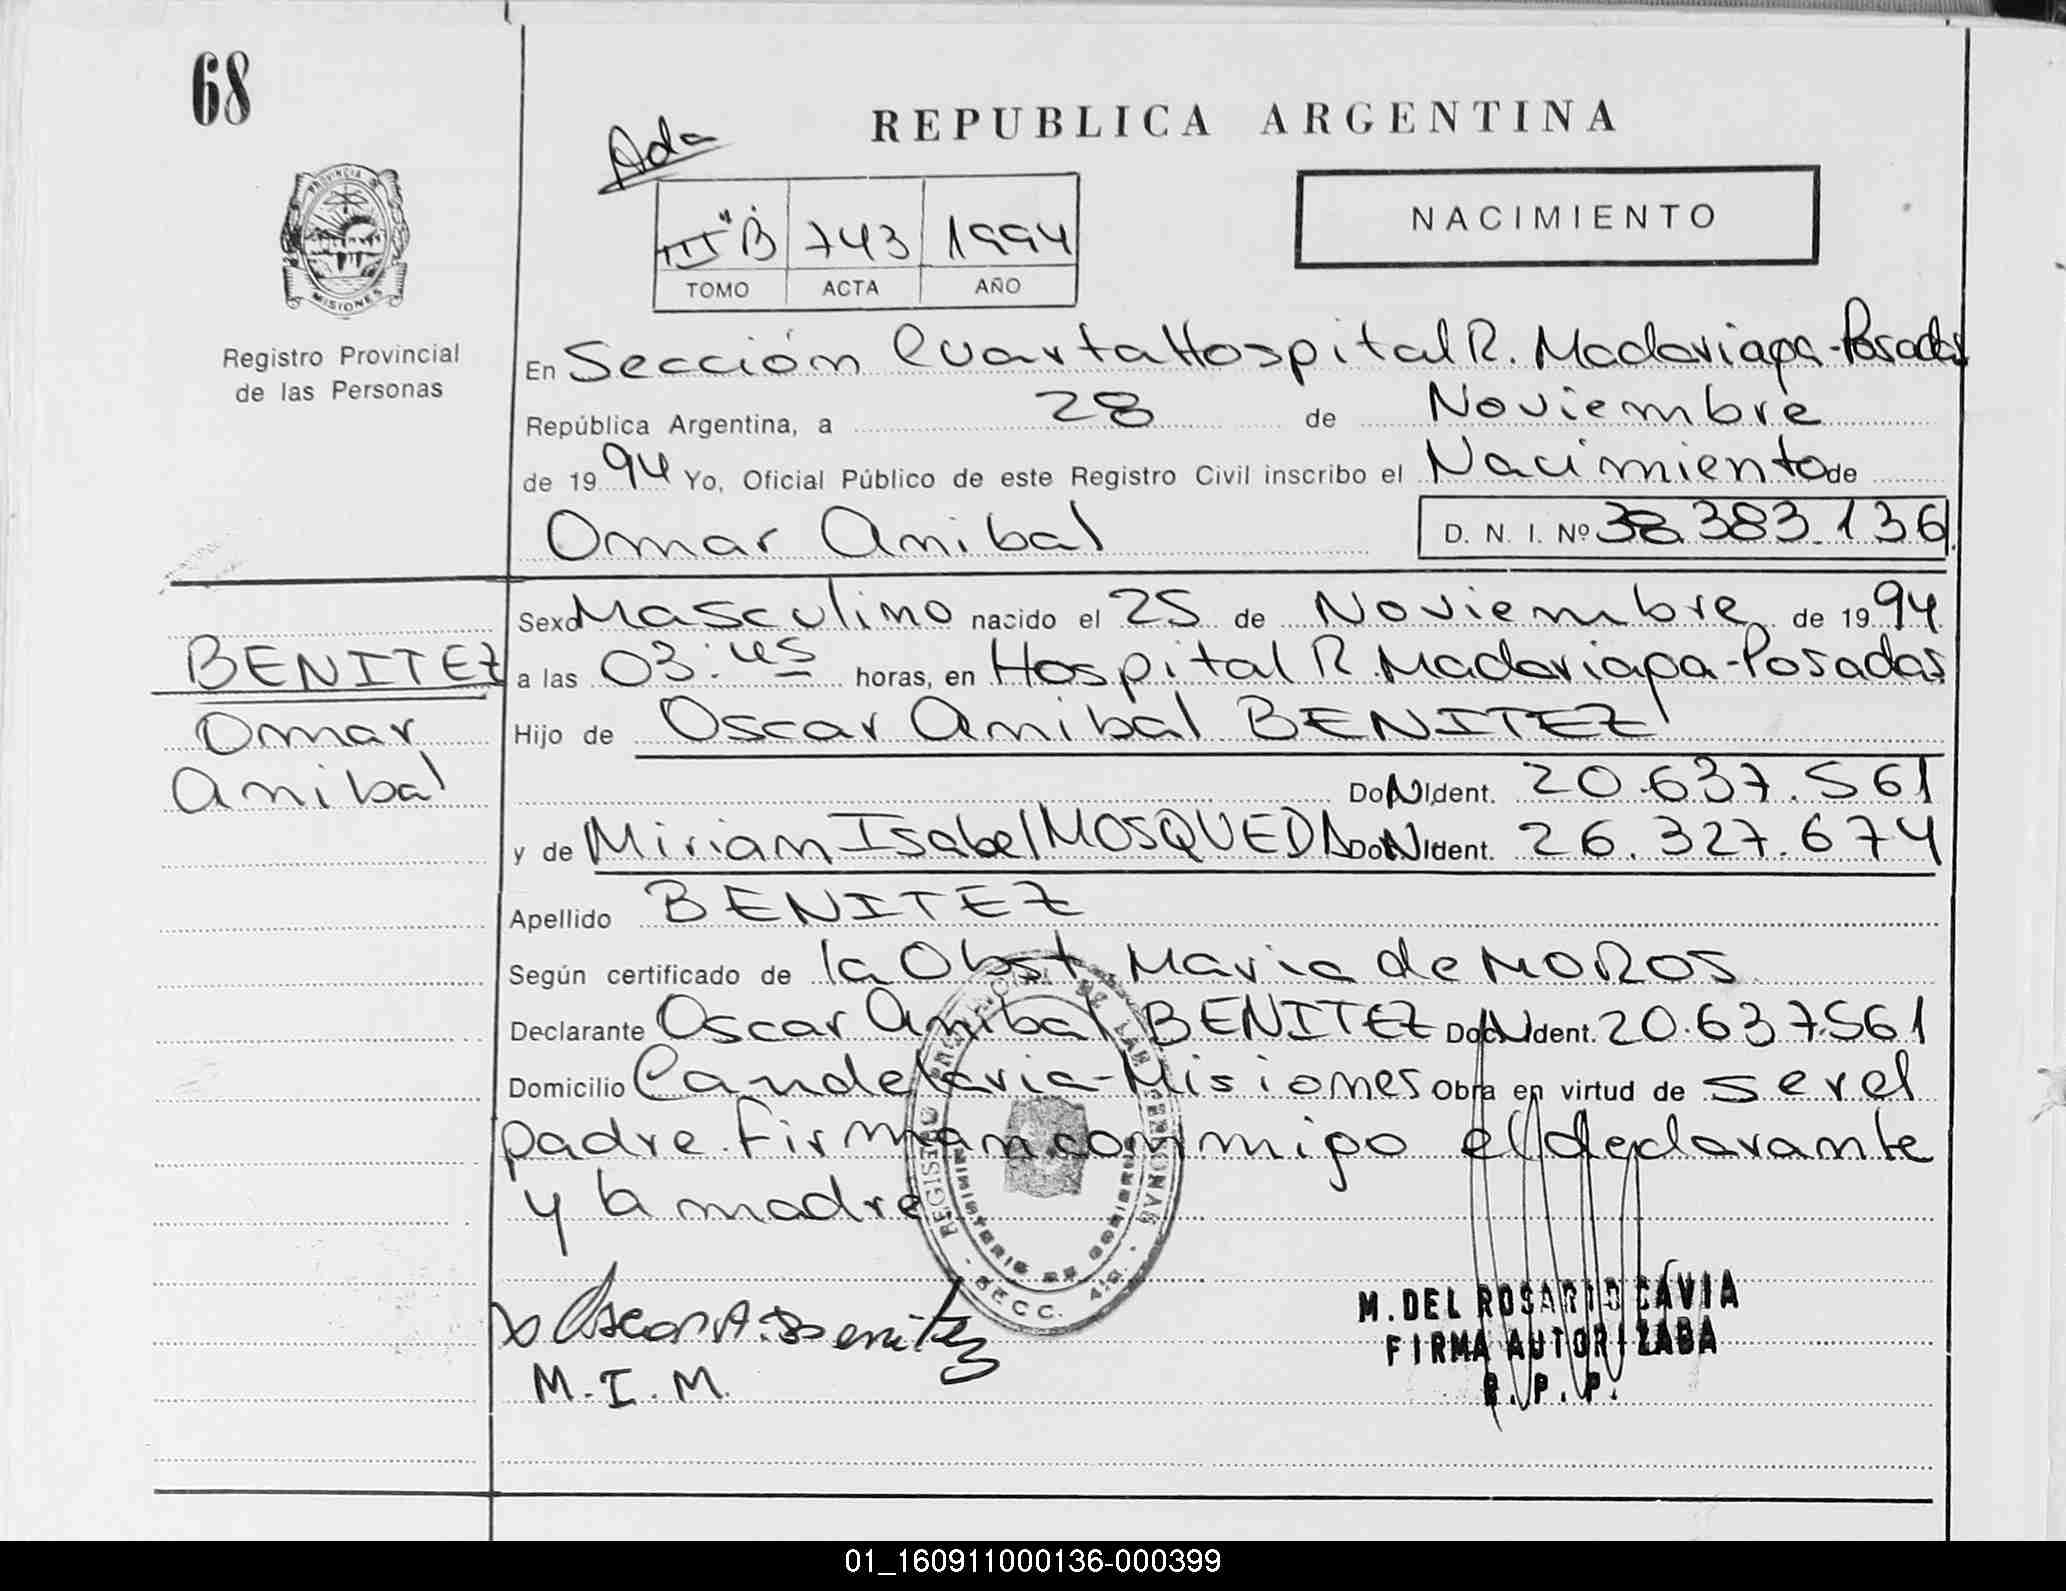 68
REPUBLICA ARGENTINA
Ada
PROVINCIA DE
MISIONES
III "B" 743 1994
TOMO ACTA AÑO
NACIMIENTO
Registro Provincial
de las Personas
En Sección Cuarta Hospital R. Madariaga-Posadas
República Argentina, a 28 de Noviembre
de 1994 Yo, Oficial Público de este Registro Civil inscribo el Nacimiento de
Omar Anibal D. N. I. Nº 38.383.136
BENITEZ
Omar
Anibal
Sexo Masculino nacido el 25 de Noviembre de 1994
a las 03:45 horas, en Hospital R. Madariaga-Posadas
Hijo de Oscar Anibal BENITEZ
Do N Ident. 20.637.561
y de Miriam Isabel MOSQUEDA Do N Ident. 26.327.674
Apellido BENITEZ
Según certificado de la Obst. Maria de MOROS
Declarante Oscar Anibal BENITEZ Doc N Ident. 20.637.561
Domicilio Candelaria-Misiones Obra en virtud de ser el
padre. Firman conmigo el declarante
y la madre
REGISTRO PROVINCIAL DE LAS PERSONAS
MINISTERIO DE GOBIERNO
SECC. 4ta.
x Oscar A. Benitez
M.I.M.
M. DEL ROSARIO CAVIA
FIRMA AUTORIZADA
R.P.P.
01_160911000136-000399